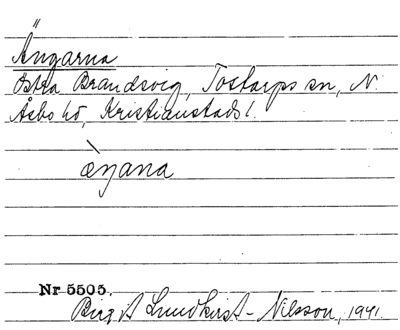 Ängarna
Östra Brandsvig, Tostarps sn, N.
Åsbo hd, Kristianstads l.
æŋana
Nr 5505.
Birgit Lundkvist-Nilsson, 1941.